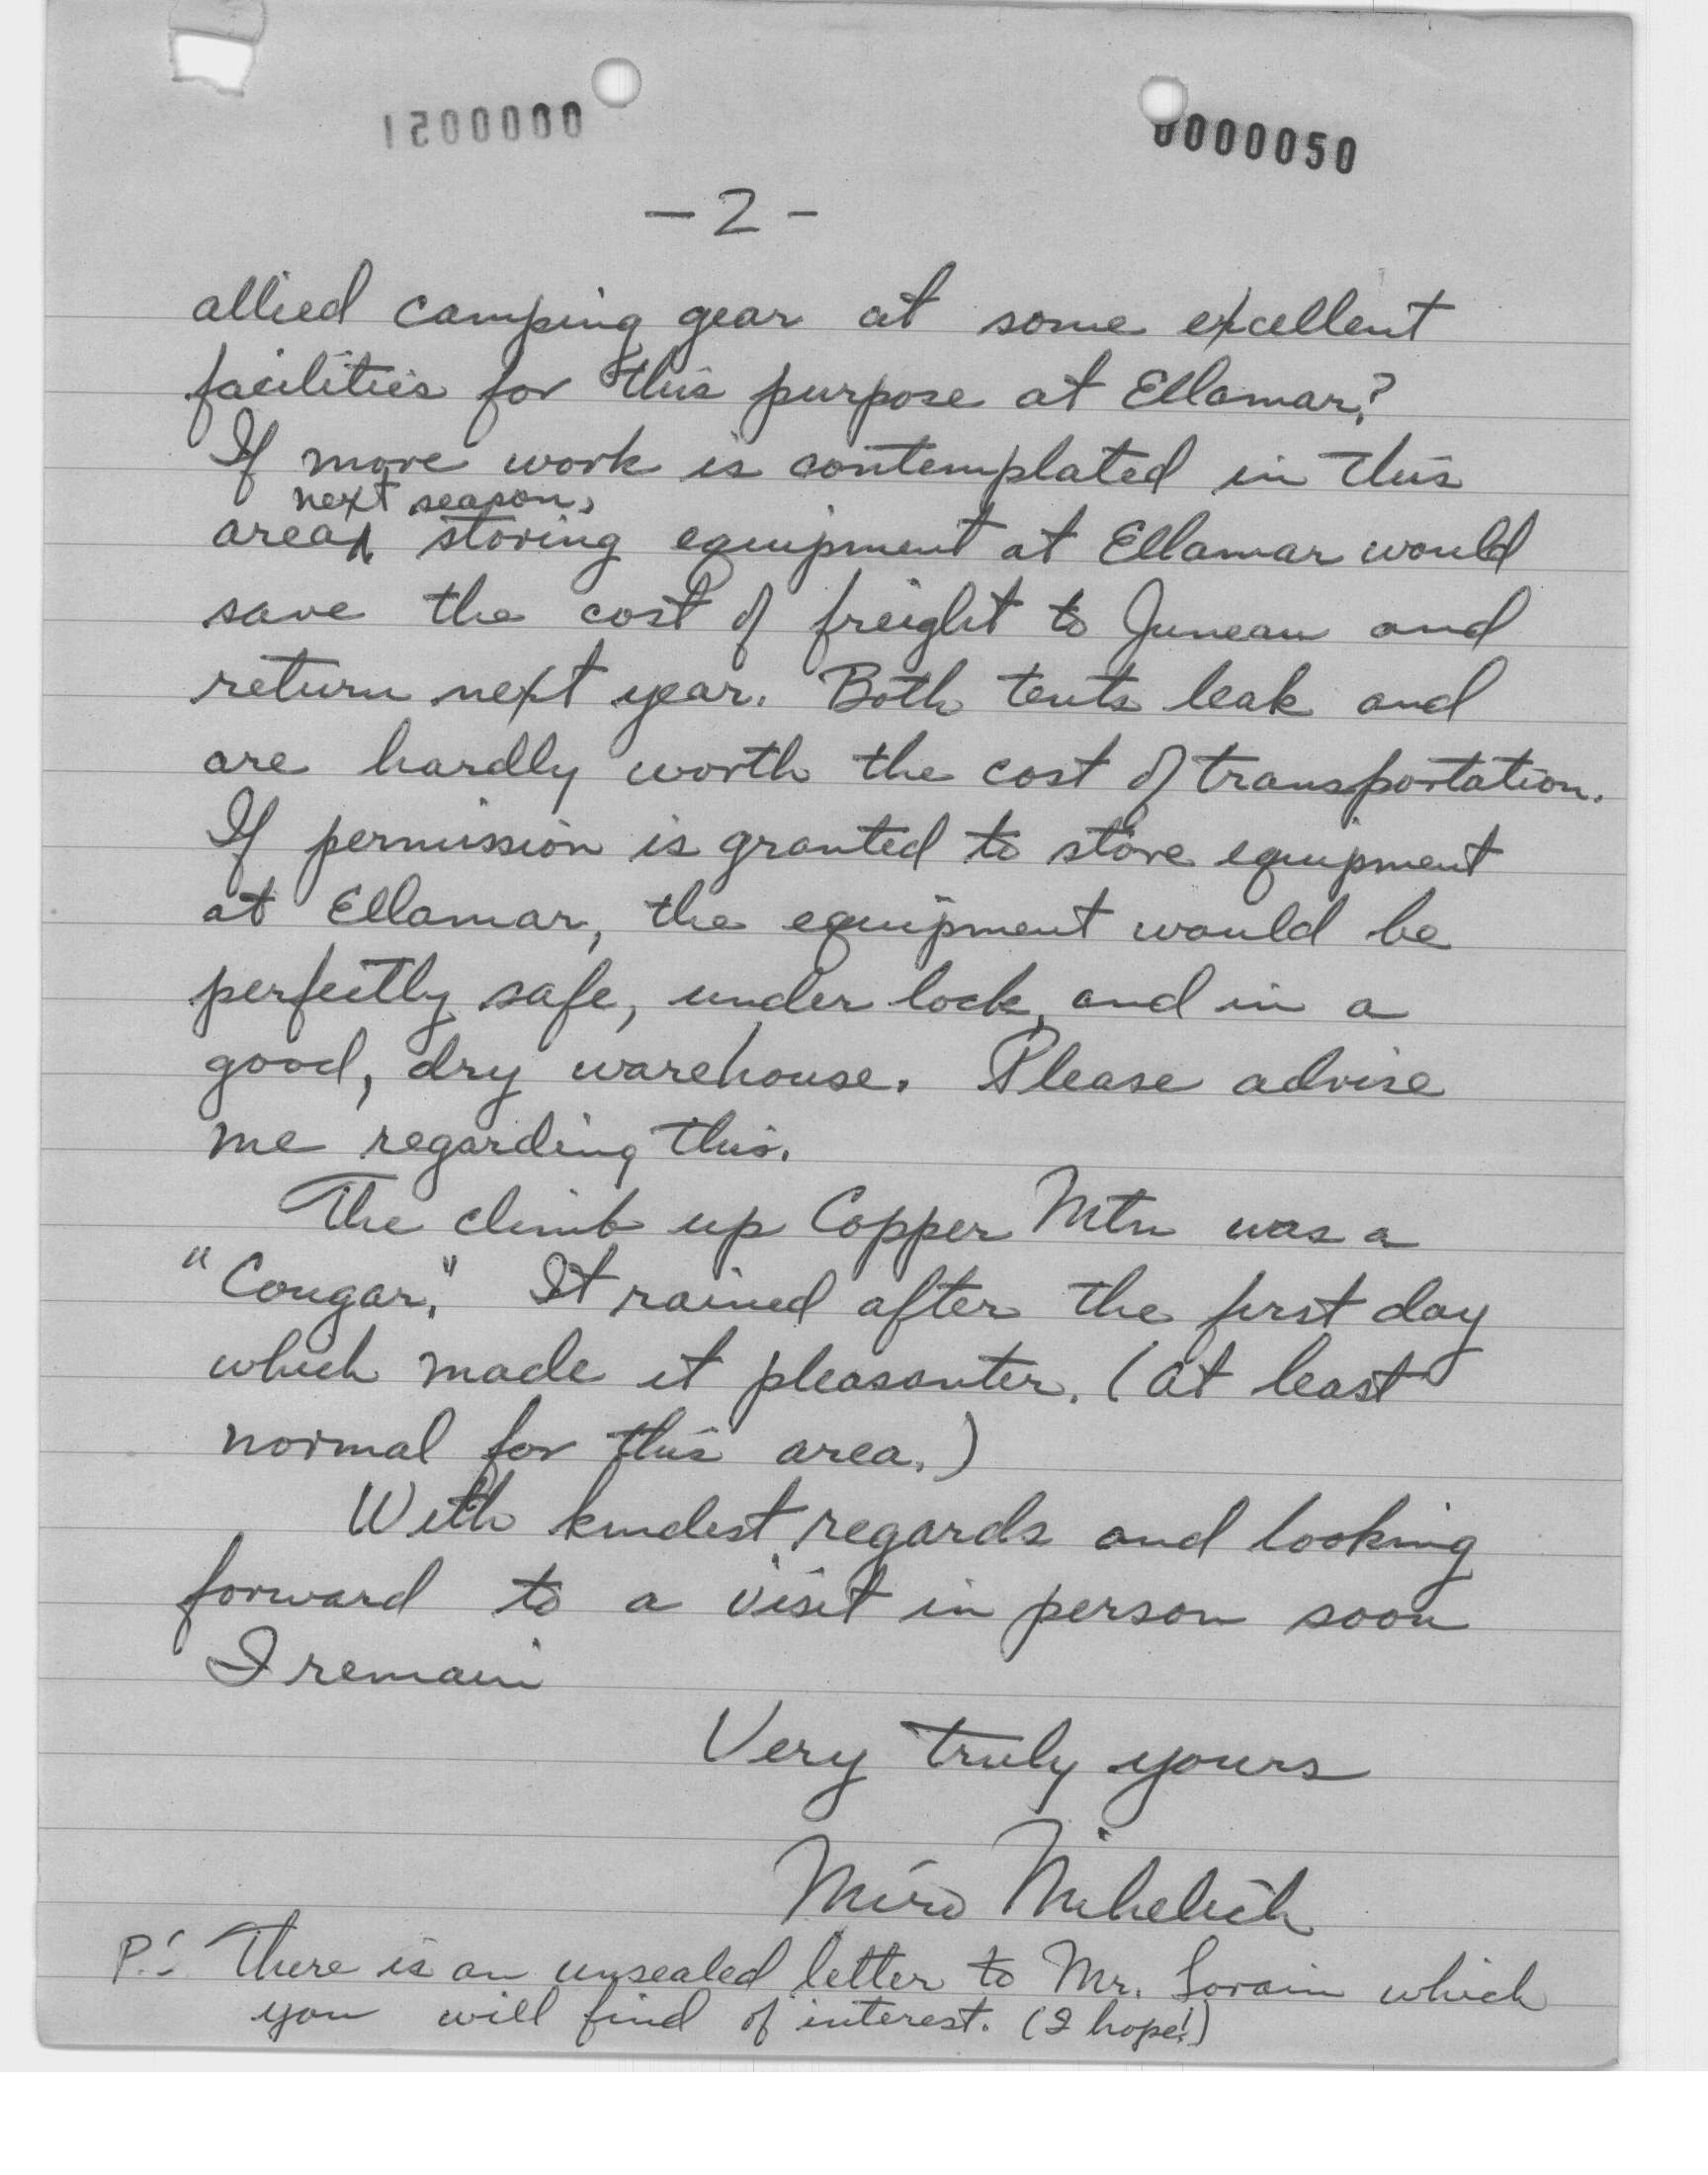 1200000
0000050
- 2 -
allied camping gear at some excellent
facilities for this purpose at Ellamar?
If more work is contemplated in this
next season,
area storing equipment at Ellamar would
save the cost of freight to Juneau and
return next year. Both tents leak and
are hardly worth the cost of transportation.
If permission is granted to store equipment
at Ellamar, the equipment would be
perfectly safe, under lock, and in a
good, dry warehouse. Please advise
me regarding this.
The climb up Copper Mtn was a
"Cougar." It rained after the first day
which made it pleasanter. (at least
normal for this area.)
With kindest regards and looking
forward to a visit in person soon
I remain
Very truly yours
Miro Mihelich
P.S. There is an unsealed letter to Mr. Lorain which
you will find of interest. (I hope!)